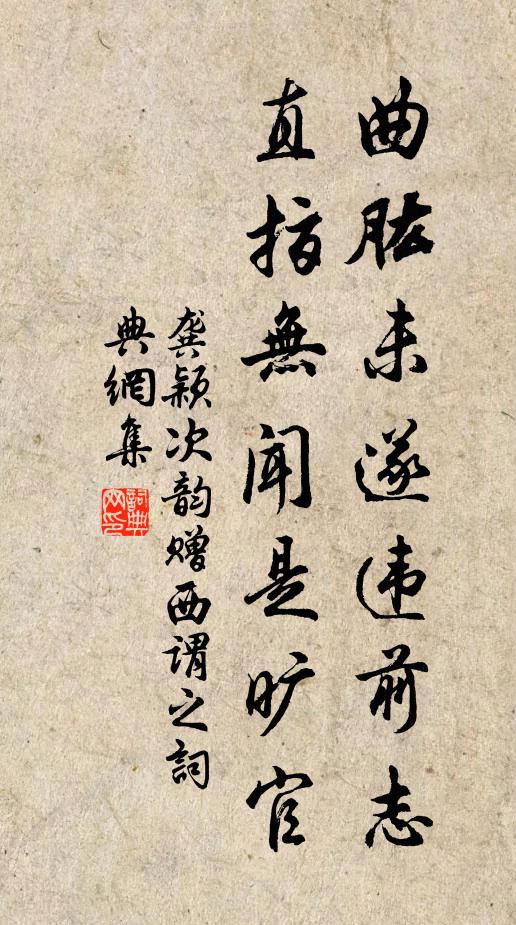 曲肱未遂违前志
直指無闻是旷官
龚颖次韵赠西谓之詞
典網集
詞典网印